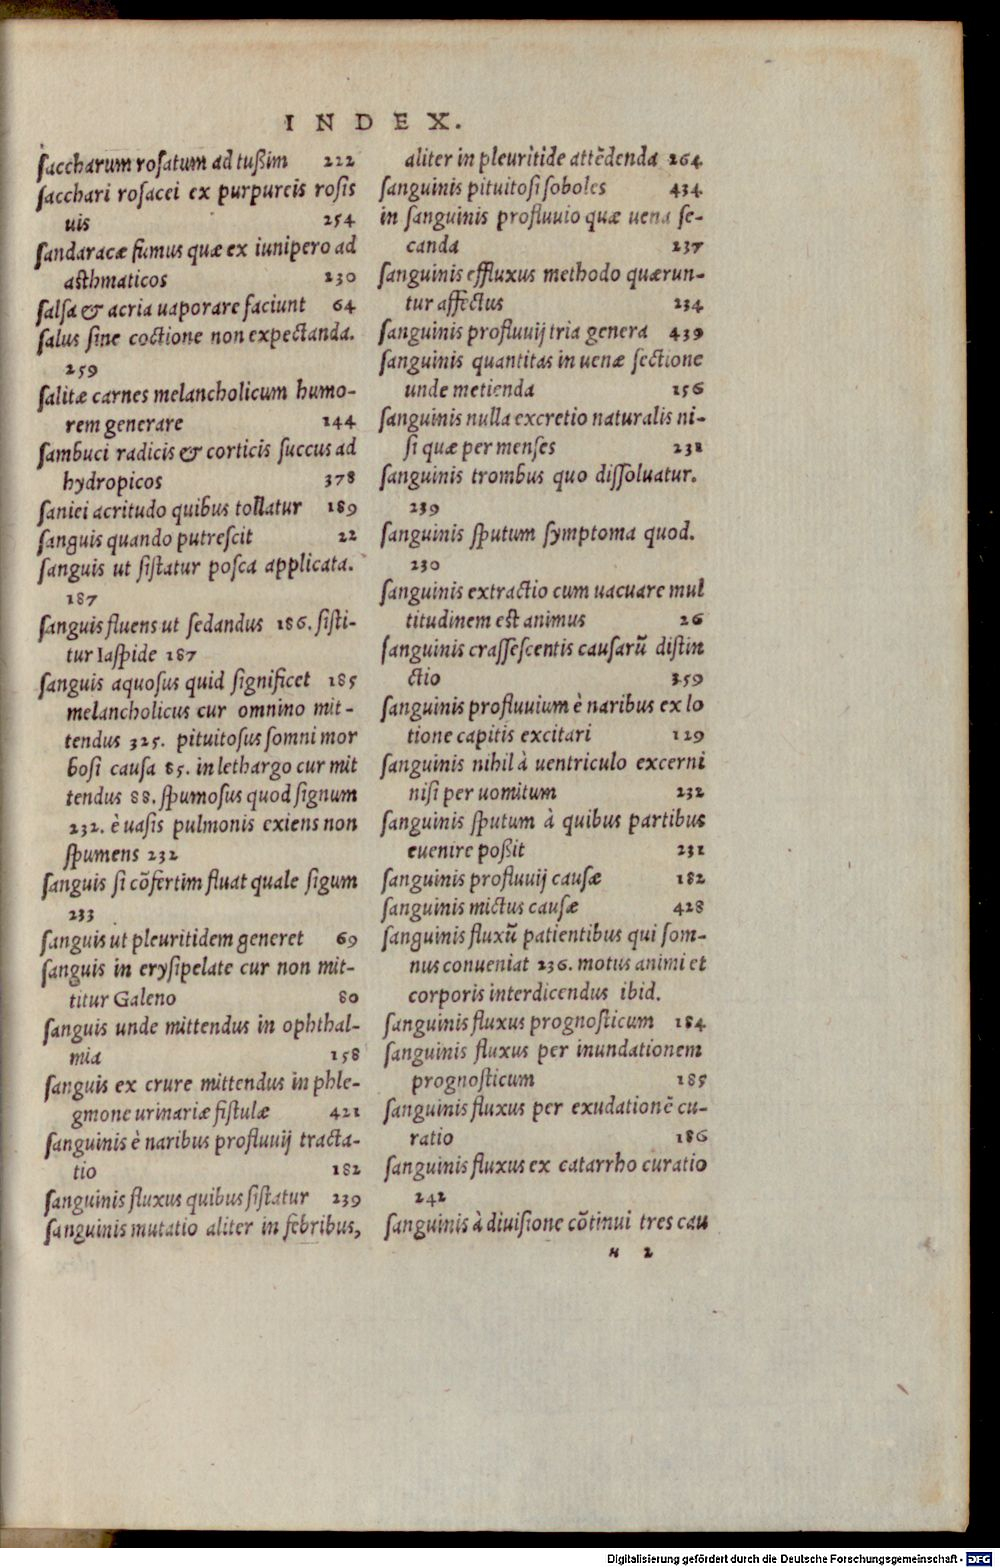 INDEX.
ſaccharum roſatum ad tußim 222
ſacchari roſacei ex purpureis roſis
uis 254
ſandaracæ fumus quæ ex iunipero ad
aſthmaticos 230
ſalſa & acria uaporare faciunt 64
ſalus ſine coctione non expectanda.
259
ſalitæ carnes melancholicum humo-
rem generare 144
ſambuci radicis & corticis ſuccus ad
hydropicos 378
ſaniei acritudo quibus tollatur 189
ſanguis quando putreſcit 22
ſanguis ut ſiſtatur poſca applicata.
187
ſanguis fluens ut ſedandus 186. ſiſti-
tur Iaſpide 187
ſanguis aquoſus quid ſignificet 185
melancholicus cur omnino mit-
tendus 325. pituitoſus ſomni mor
boſi cauſa 85. in lethargo cur mit
tendus 88. ſpumoſus quod ſignum
232. è uaſis pulmonis exiens non
ſpumens 232
ſanguis ſi cōfertim fluat quale ſigum
233
ſanguis ut pleuritidem generet 69
ſanguis in eryſipelate cur non mit-
titur Galeno 80
ſanguis unde mittendus in ophthal-
mia 158
ſanguis ex crure mittendus in phle-
gmone urinariæ fiſtulæ 421
ſanguinis è naribus profluuij tracta-
tio 182
ſanguinis fluxus quibus ſiſtatur 239
ſanguinis mutatio aliter in febribus,
aliter in pleuritide attēdenda 264
ſanguinis pituitoſi ſoboles 434
in ſanguinis profluuio quæ uena ſe-
canda 237
ſanguinis effluxus methodo quærun-
tur affectus 234
ſanguinis profluuij tria genera 439
ſanguinis quantitas in uenæ ſectione
unde metienda 156
ſanguinis nulla excretio naturalis ni-
ſi quæ per menſes 238
ſanguinis trombus quo diſſoluatur.
239
ſanguinis ſputum ſymptoma quod.
230
ſanguinis extractio cum uacuare mul
titudinem eſt animus 26
ſanguinis craſſeſcentis cauſarū diſtin
ctio 359
ſanguinis profluuium è naribus ex lo
tione capitis excitari 129
ſanguinis nihil à uentriculo excerni
niſi per uomitum 232
ſanguinis ſputum à quibus partibus
euenire poßit 231
ſanguinis profluuij cauſæ 182
ſanguinis mictus cauſæ 428
ſanguinis fluxū patientibus qui ſom-
nus conueniat 236. motus animi et
corporis interdicendus ibid.
ſanguinis fluxus prognoſticum 184
ſanguinis fluxus per inundationem
prognoſticum 185
ſanguinis fluxus per exudationē cu-
ratio 186
ſanguinis fluxus ex catarrho curatio
242
ſanguinis à diuiſione cōtinui tres cau
2
Digitalisierung gefördert durch die Deutsche Forschungsgemeinschaft - DFG